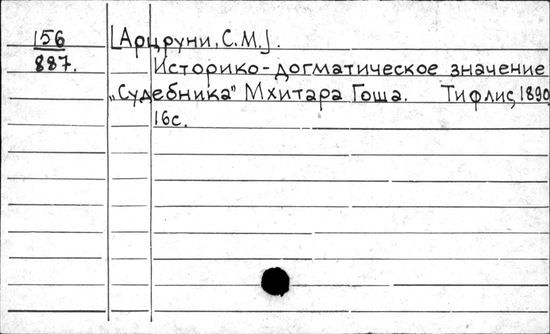 156
887.
[Арцруни, С.М.].
Историко-догматическое значение
„Судебника" Мхитара Гоша. Тифлис, 1890
16с.